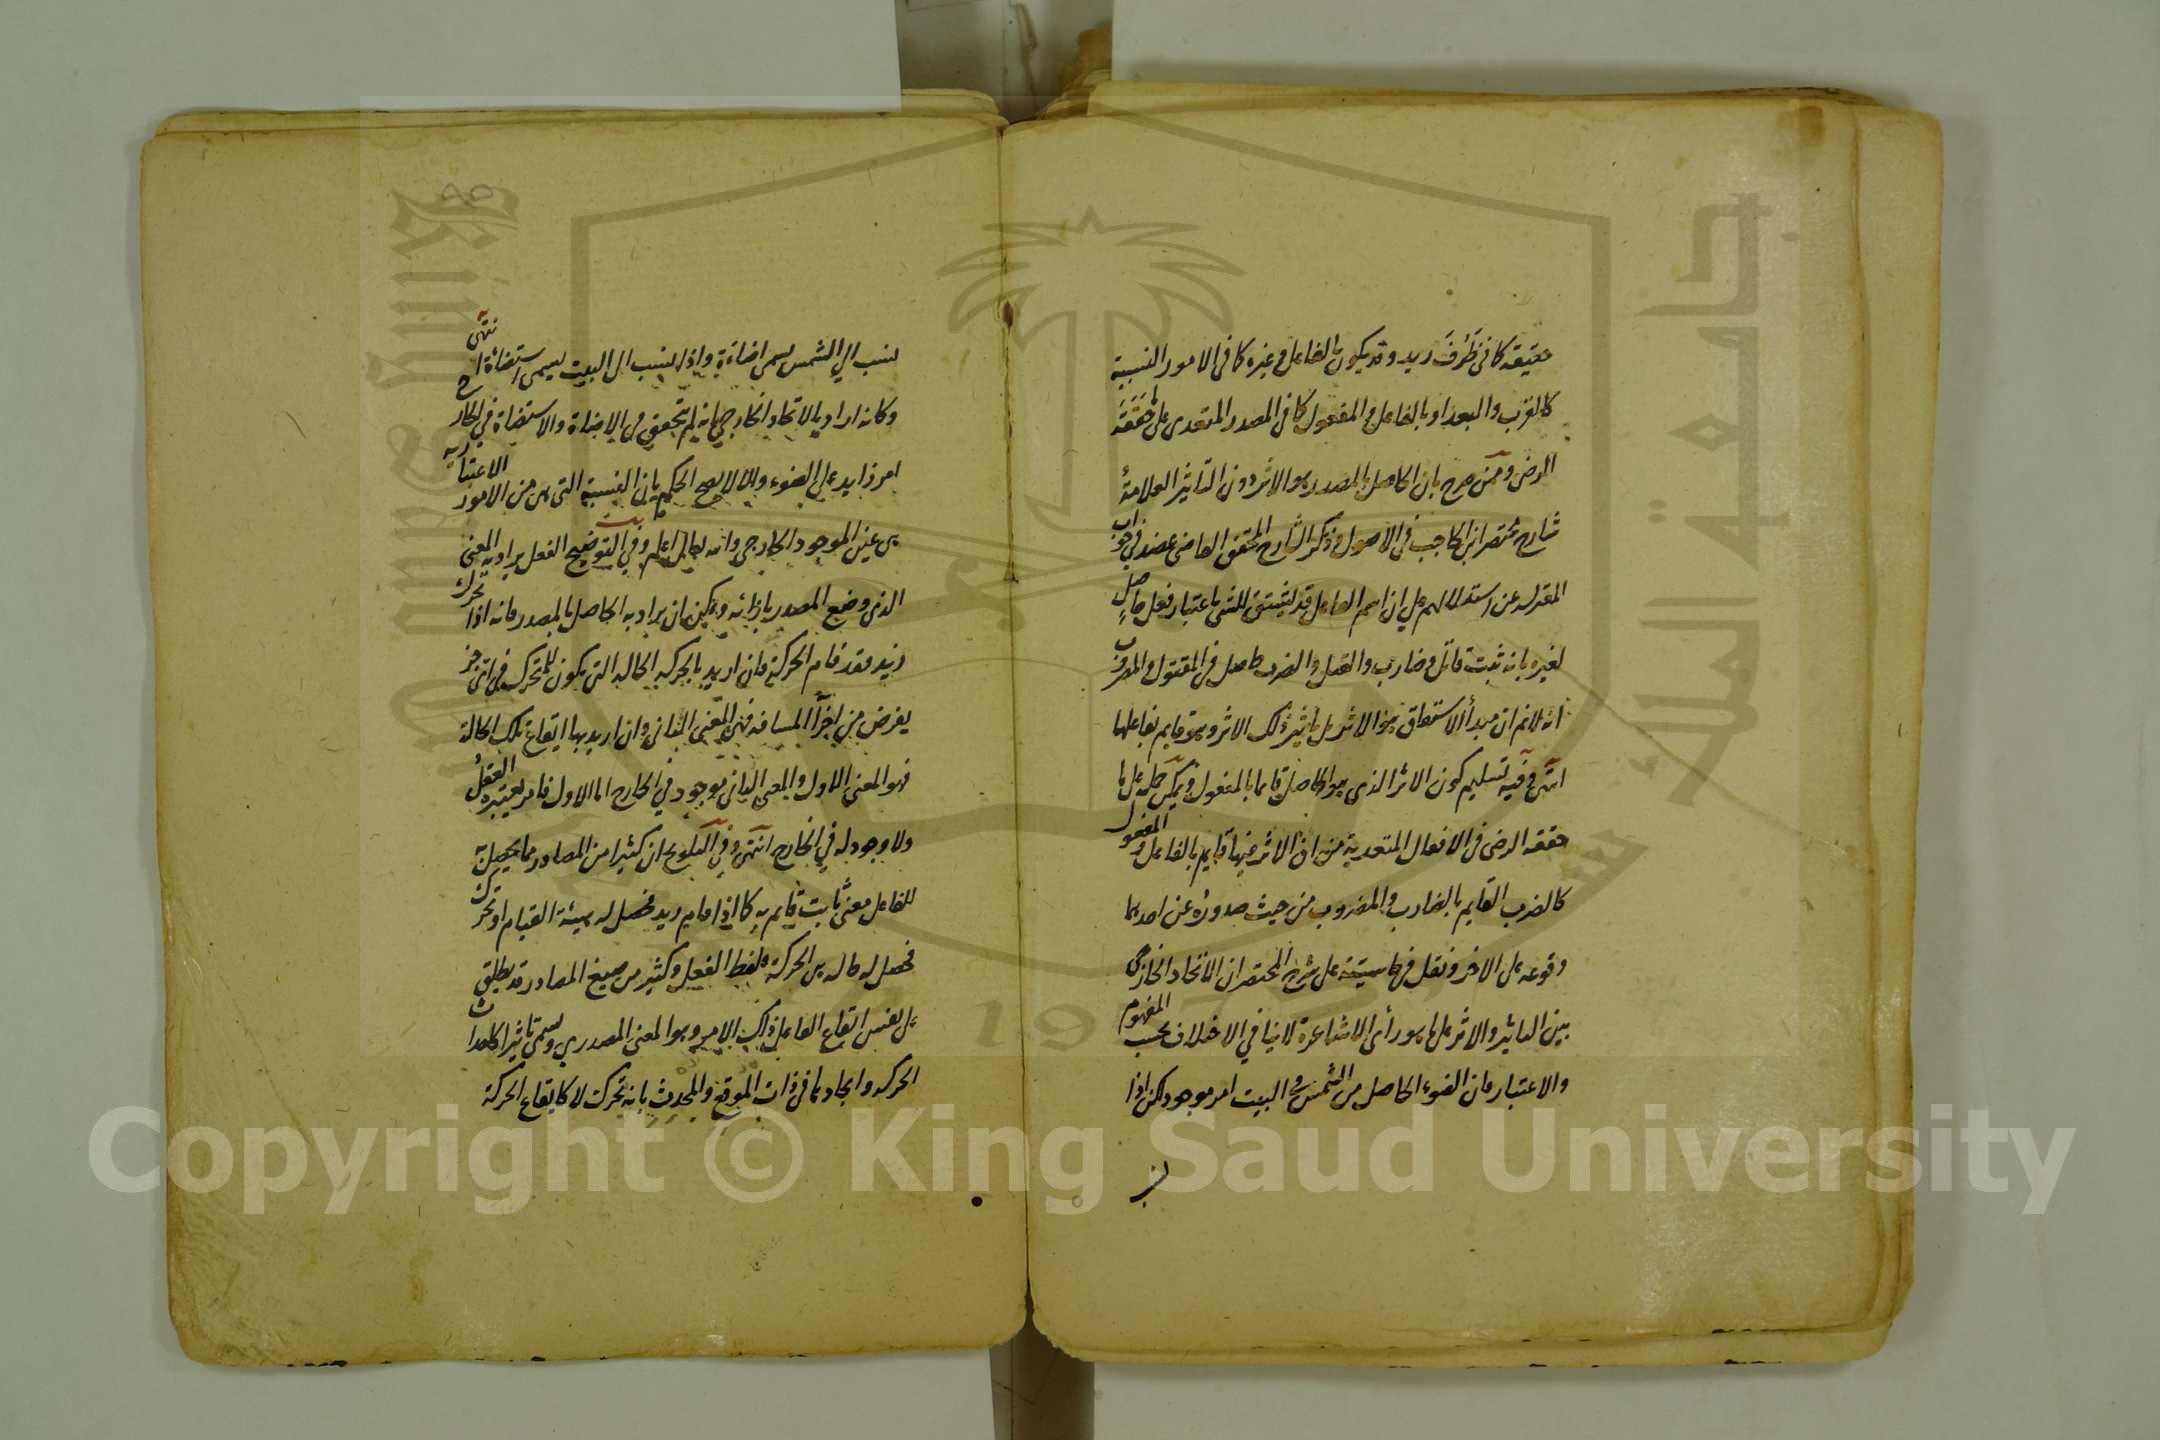 حقيقة كما فى ظَرُفَ زيد وقد يكون بالفاعل وغيره كما فى الامور النسبية
كالقرب والبعد او بالفاعل والمفعول كما فى المصدر المتعدى على ما حققه
الرضى وممن صرح بان الحاصل بالمصدر هو الاثر دون التاثير العلامة
شارح مختصر ابن الحاجب فى الاصول وذكر الشارح المحقق القاضى عضد فى جواب
المعتزلة عن استدلالهم على ان اسم الفاعل قد يشتق للشئ باعتبار فعل حاصل
لغيره بانه ثبت قاتل وضارب والقتل والضرب حاصل فى المقتول والمضروب
انا لا نم ان مبدأ الاشتقاق هو الاثر بل تأثير ذلك الاثر وهو قايم بفاعلها
انتهى وفيه تسليم كون الاثر الذى هو الحاصل قايما بالمفعول ويمكن حمله على ما
حققه الرضى فى الافعال المتعدية من ان الاثر فيها قايم بالفاعل والمفعول
كالضرب القايم بالضارب والمضروب من حيث صدوره عن احدهما
وقوعه على الاخر ونقل فى حاشيته على شرح المختصر ان الاتحاد الخارجى
بين التاثير والاثر على ما هو رأى الاشاعرة لا ينافي الاختلاف بحسب المفهوم
والاعتبار فان الضوء الحاصل من الشمس فى البيت امر موجود لكن اذا
نسب
نسب الي الشمس يسمى اضاءة واذا نسب الى البيت يسمى استضاءة انتهى
وكانه اراد بالاتحاد الخارجي انه لم يتحقق من الاضاءة والاستضاة في الخارج
امر زايد على الضوء والا لا يصح الحكم بان النسبة التى هى من الامور الاعتبارية
هى عين الموجود الخارجى والله تعالى اعلم وفي التوضيح الفعل يراد به المعنى
الذى وضع المصدر بازائه ويمكن ان يراد به الحاصل بالمصدر فانه اذا تحرك
زيد فقد قام الحركة فان اريد بالحركة الحالة التى يكون للمتحرك فى اى جزء
يفرض من اجزآ المسافة فهى المعنى الثاني وان اريد بها ايقاع تلك الحالة
فهو المعنى الاول والمعنى الثانى موجود في الخارج اما الاول فامر يعتبره العقلُ
ولا وجود له في الخارج انتهى وفى التلويح ان كثيرا من المصادر مما يحصل به
للفاعل معنى ثابت قايم به كما اذا قام زيد فحصل له هيئة القيام او تحرك
فحصل له حالة هى الحركة فلفظ الفعل وكثير من صيغ المصادر قد يطلق
على نفس ايقاع الفاعل ذلك الامر وهو المعنى المصدري ويسمى تاثيرا كاحداث
الحركة وايجادها فى ذات الموقع والمحدث بانه تحرك لا كايقاع الحركة